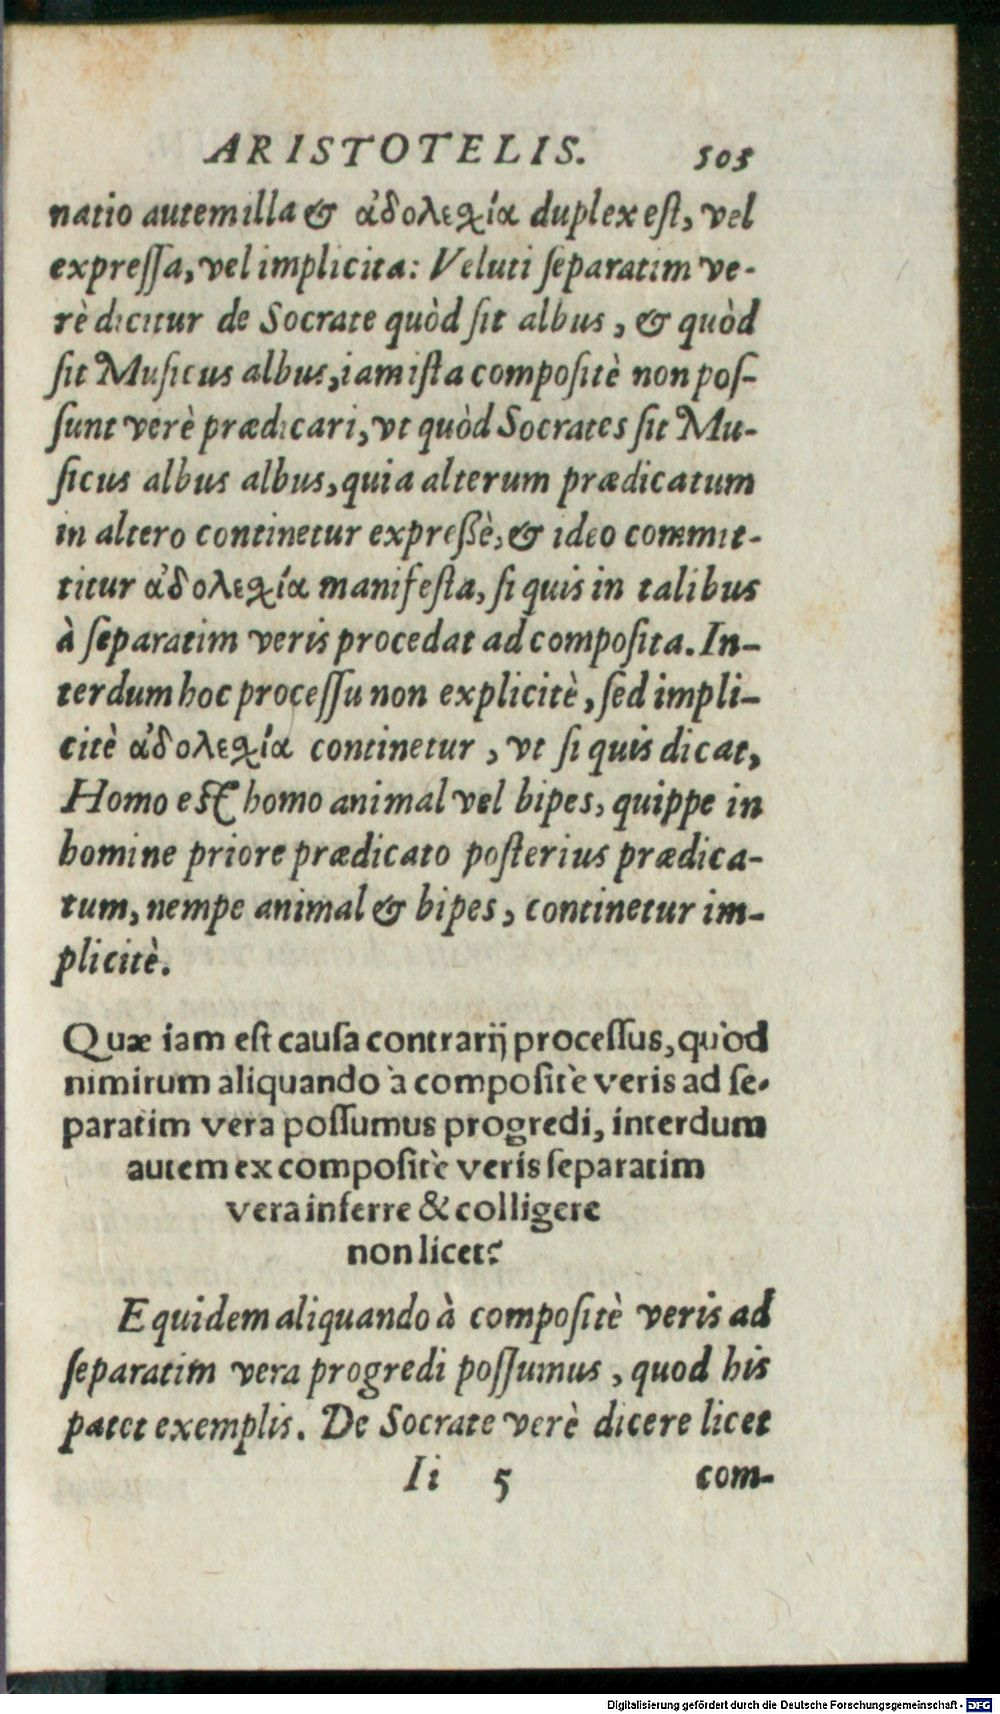 ARISTOTELIS. 505
natio autem illa & ἀδολεχία duplex est, vel
expreſſa, vel implicita: Veluti ſeparatim ve-
rè dicitur de Socrate quòd ſit albus, & quòd
ſit Muſicus albus, iam iſta compoſitè non poſ-
ſunt verè prædicari, vt quòd Socrates ſit Mu-
ſicus albus albus, quia alterum prædicatum
in altero continetur expreßè, & ideo commit-
titur ἀδολεχία manifeſta, ſi quis in talibus
à ſeparatim veris procedat ad compoſita. In-
terdum hoc proceſſu non explicitè, ſed impli-
citè ἀδολεχία continetur, vt ſi quis dicat,
Homo eſt homo animal vel bipes, quippe in
homine priore prædicato poſterius prædica-
tum, nempe animal & bipes, continetur im-
plicitè.
Quæ iam eſt cauſa contrarij proceſſus, quòd
nimirum aliquando à compoſitè veris ad ſe-
paratim vera poſſumus progredi, interdum
autem ex compoſitè veris ſeparatim
vera inferre & colligere
non licet?
Equidem aliquando à compoſitè veris ad
ſeparatim vera progredi poſſumus, quod his
patet exemplis. De Socrate verè dicere licet
Ii 5 com-
Digitalisierung gefördert durch die Deutsche Forschungsgemeinschaft - DFG